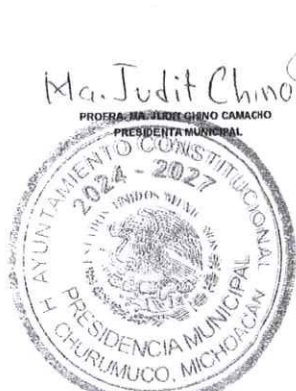 Ma. Judit Chino
PROFRA. MA. JUDIT CHINO CAMACHO
PRESIDENTA MUNICIPAL
H AYUNTAMIENTO CONSTITUCIONAL
2024 - 2027
ESTADOS UNIDOS MEXICANOS
PRESIDENCIA MUNICIPAL
CHURUMUCO, MICHOACÁN